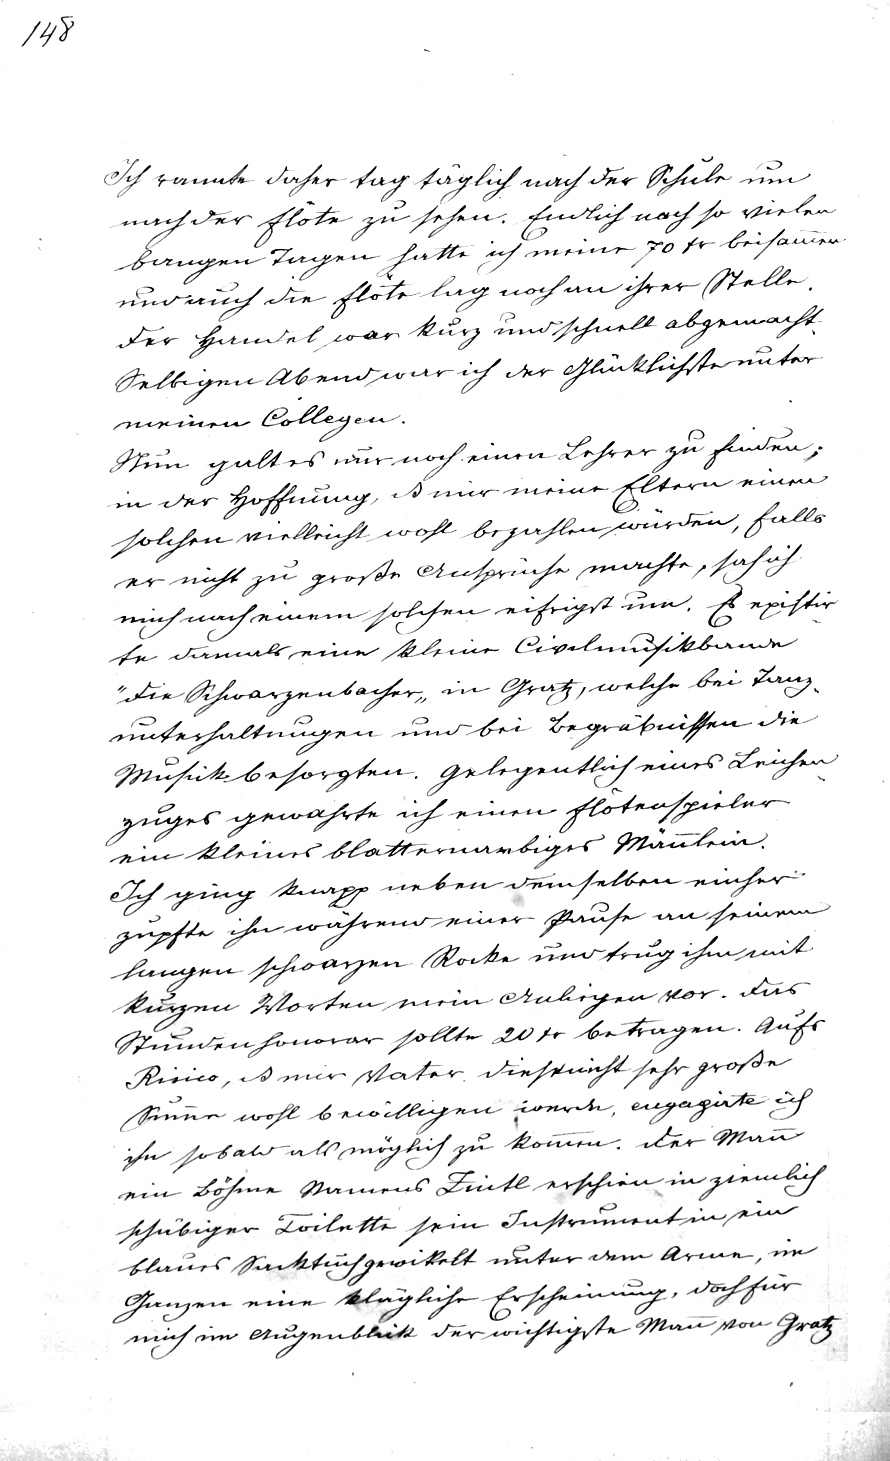 148
Ich rannte daher tag täglich nach der Schule um
nach der Flöte zu sehen. Endlich nach so vielen
bangen Tagen hatte ich meine 70 kr beisam̅en
und auch die Flöte lag noch an ihrer Stelle.
Der Handel war kurz und schnell abgemacht.
Selbigen Abend war ich der Glücklichste unter
meinen Collegen.
Nun galt es nur noch einen Lehrer zu finden;
in der Hoffnung, ds mir meine Eltern einen
solchen vielleicht wohl bezahlen würden, falls
er nicht zu große Ansprüche machte, sah ich
mich nach einem solchen eifrigst um. Es existir
te damals eine kleine Civilmusikbande
"Die Schwarzenbacher„ in Gratz, welche bei Tanz-
unterhaltungen und bei Begräbnissen die
Musik besorgten. Gelegentlich eines Leichen
zuges gewahrte ich einen Flötenspieler
ein kleines blatternarbiges Män̅lein.
Ich ging knapp neben demselben einher
zupfte ihn während einer Pause an seinem
langen schwarzen Rocke und trug ihm mit
kurzen Worten mein Anliegen vor. Das
Stundenhonorar sollte 20 kr betragen. Aufs
Risico, ds mir Vater diese nicht sehr große
Sum̅e wohl bewilligen werde, engagirte ich
ihn sobald als möglich zu kom̅en. Der Man̅
ein Böhme Namens Zintl erschien in ziemlich
schäbiger Toilette sein Instrument in ein
blaues Sacktuch gewikelt unter dem Arme, im
Ganzen eine klägliche Erscheinung, doch für
mich im Augenblick der wichtigste Man̅ von Gratz